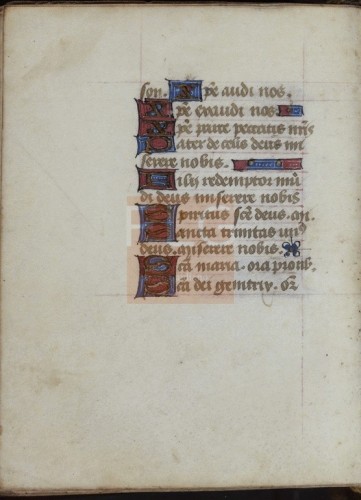 son. Xp̄e audi nos.
Xp̄e exaudi nos
Xp̄e parce peccatis nr̄is
Pater de celis deus mi
serere nobis.
Filij redemptor mū
di deus miserere nobis
Spiritus sc̄e deus. mi.
Sancta trinitas unꝰ
deus. miserere nobis.
Sc̄a maria. ora pro nob.
Sc̄a dei genitrix. or̄